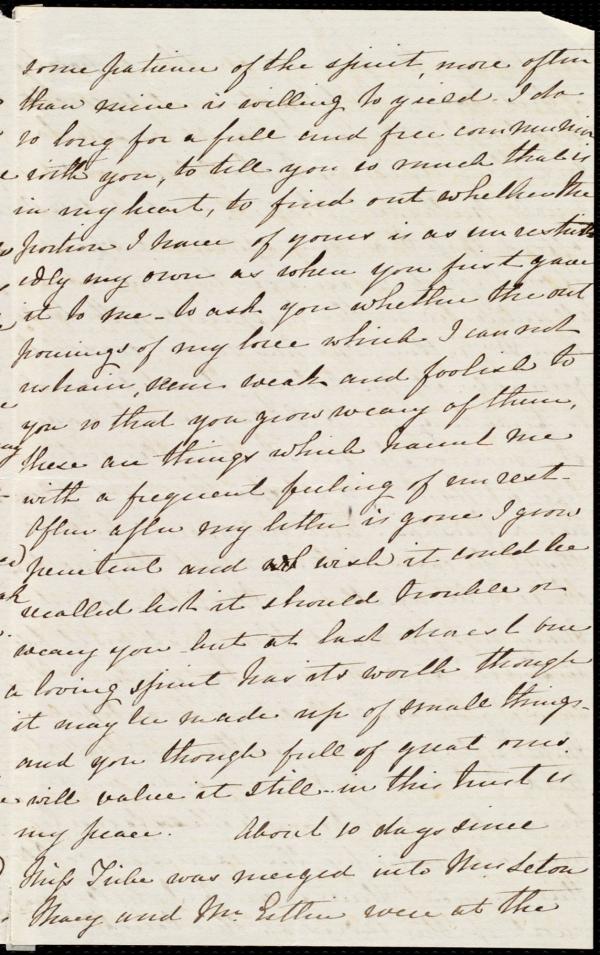 some patience of the spirit, more often
than mine is willing to yield. I do
so long for a full and free communion
with you, to tell you so much that is
in my heart, to find out whether the
portion I have of yours is as unrestrict
edly my own as when you first gave
it to me - to ask you whether the out
pourings of my love which I can not
restrain, seem weak and foolish to
you so that you grow weary of them,
these are things which haunt me
with a frequent feeling of unrest -
Often after my letter is gone I grow
penitent and wish it could be
recalled lest it should trouble or
weary you but at last dearest one
a loving spirit has its worth though
it may be made up of small things -
and you though full of great ones.
will value it still - in this trust is
my peace. About 10 days since
Miss was merged into Mrs
Mary and Mr. Estlin were at the